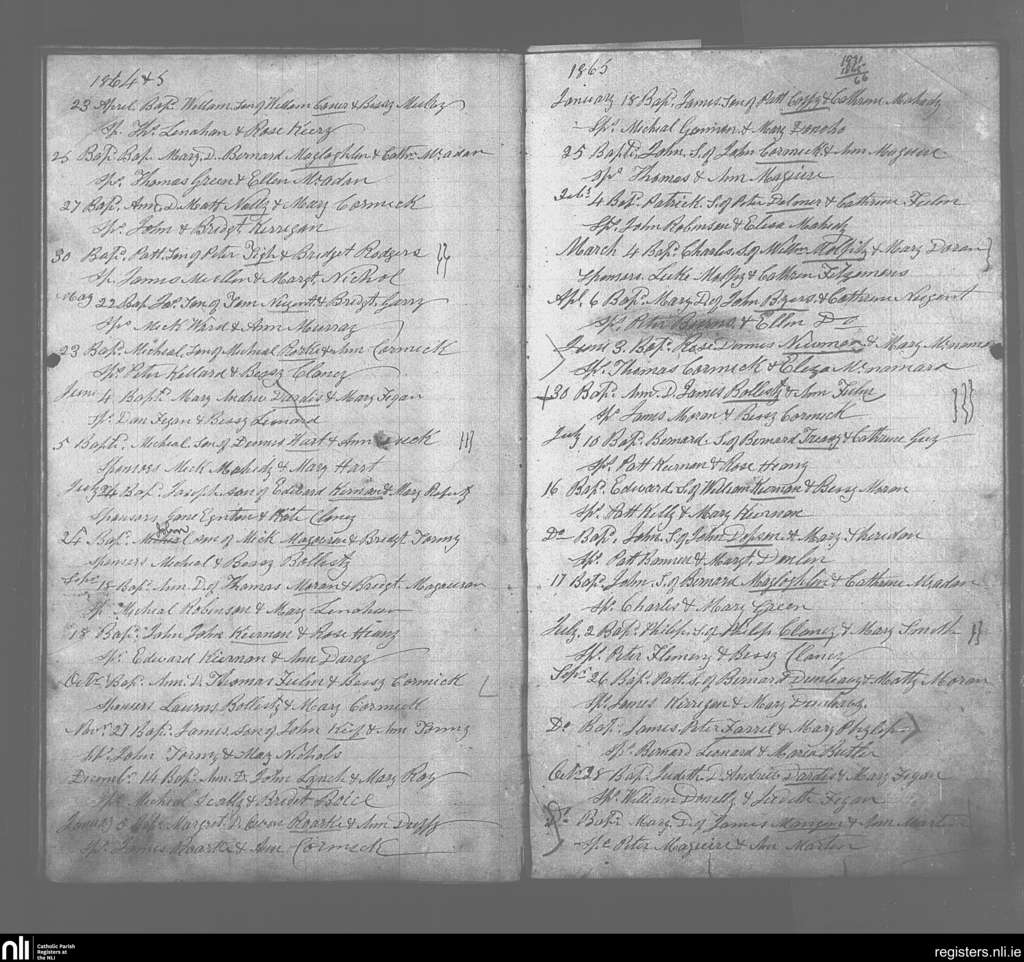 1864 & 5
23 April Bapt. William Son of William & Bessy
Sp. Ths. Lenahan & Rose Kiery
25 Bapt. Bap. Mary D. Bernard Magloghlin & Cathn. McAdan
Sps. Thomas Green & Ellen McAdan
27 Bapt. Ann D. Matt Nally & Mary Cormick
Sps. John & Bridgt Kerrigan
30 Bapt. Patt Son of Peter & Bridget Rodgers
Sp. James Mullen & Margt. Nichol
May 22 Bap. Jas. Son of Nugent & Bridgt. Garry
Sps. Mick Ward & Ann Murray
23 Bapt. Micheal Son of Micheal Rorke & Ann Cormick
Sps. Peter Hilliard & Bessy Clancy
June 4 Bapt. Mary Andrew Dardis & Mary Fegan
Sp. Dan Fegan & Bessy Leonard
5 Bapt. Micheal Son of Dennis & Ann
Sponsors Mick Mahedy & Mary Hart
July 24 Bap. Joseph son of Edward Kiernan & Mary
Sponsors Jane & Kate Clancy
24 Bapt. John son of Mick Magouran & Bridgt Tormy
Sponsors Micheal & Bessy Bollisty
Sept. 18 Bapt. Ann D. of Thomas Moran & Bridgt Magouran
Sp. Micheal Robinson & Mary Lenahan
18 Bapt. John John Kiernan & Rose Heany
Sps. Edward Kiernan & Ann Darcy
Oct. Bapt. Ann D. Thomas Feelin & Bessy Cormick
Sponsers Laurns Bollisty & Mary Cormick
Novr. 27 Bapt. James Son of John & Ann
Sps. John Tormy & Mary Nichols
Decmbr. 14 Bap. Ann D. John Lynch & Mary Ray
Sps. Micheal Scally & Bridget
5 Margret D. Roarke & Ann Duffy
Sps. James Roarke & Ann Cormick
1865
1891
1865
66
January 18 Bapt. James Son of Patt & Cathrine Mahedy
Sps. Micheal Gannon & Mary Donoho
25 Bapt. John S. of John Cormick & Ann Maguire
Sps. Thomas & Ann Maguire
Feb. 4 Bapt. Patrick S. of Peter Palmer & Cathrine Feelin
Sps. John Robinson & Eliza Mahedy
March 4 Bapt. Charles S. of & Mary Doran
Sponsers Luke & Cathrine Fitzsimons
Apl. 6 Bapt. Mary D. of John Byers & Cathrine Nugent
Sps. Peter & Ellen Do
June 3 Bapt. Rose Dennis Newman & Mary McNamara
Sp. Thomas Cormick & Eliza McNamara
30 Bapt. Ann D. James Bollisty & Ann Feelin
Sp. James Moran & Bessy Cormick
July 10 Bapt. Bernard S. of Bernard Treacy & Cathrine
Sps. Patt Kiernan & Rose Heany
16 Bapt. Edward S. of William Kiernan & Bessy Moran
Sp. Patt Kelly & Mary Kiernan
Do Bapt. John S. of John Dopson & Mary Sheridan
Sps. Patt Bannen & Margt. Donlin
17 Bapt. John S. of Bernard Magloghlin & Cathrine McAdan
Sps. Charles & Mary Green
July 2 Bapt. Philip S. of Philip Clancy & Mary Smith
Sps. Peter Flemeny & Bessy Clancy
Sept. 26 Bapt. Patt S. of Bernard & Matty Moran
Sps. James Kerrigan & Mary
Do Bap. James Peter Farrel & Mary
Sps. Bernard Leonard & Maria
Oct. 28 Bap. Judith D. Andrew Dardis & Mary Fegan
Sps. William & Judith Fegan
Do. Bapt. Mary D. of James & Ann Martin
Sps. Peter Maguire & Ann Martin
nli
Catholic Parish
Registers at
the NLI
registers.nli.ie